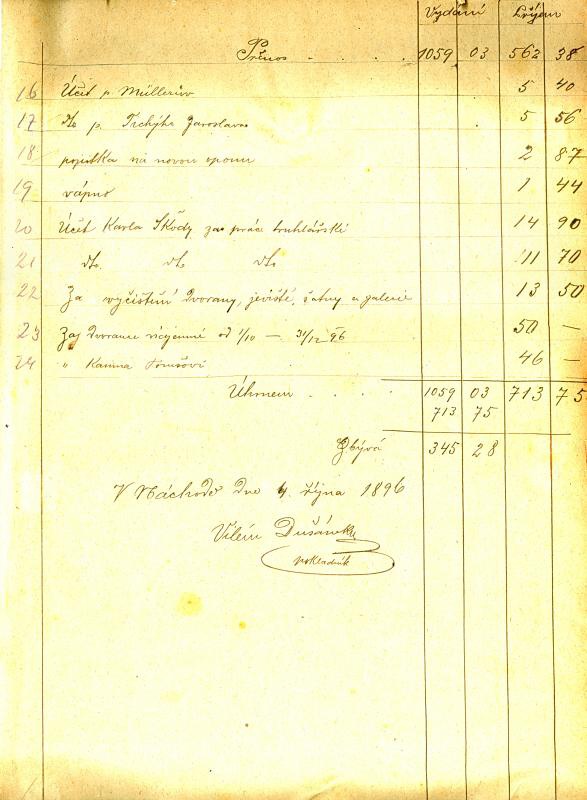 Vydání Příjem
Přenos . . . . 1059 03 562 38
16 Účet p. Müllerův 5 40
17 dto p. Trchýho Jaroslava 5 56
18 pojistka na novou oponu 2 87
19 vápno 1 44
20 Účet Karla Škody za práce truhlářské 14 90
21 dto. dto dto 11 70
22 Za vyčištění Dvorany, jeviště, šatny a galerie 13 50
23 Za Dvoranu od 1/10 — 31/12 96 50 —
24 " Kamna 46 —
Úhrnem . . . . 1059 03 713 75
713 75
Zbývá 345 28
V Náchodě dne října 1896
Vilém Dušánek
pokladník